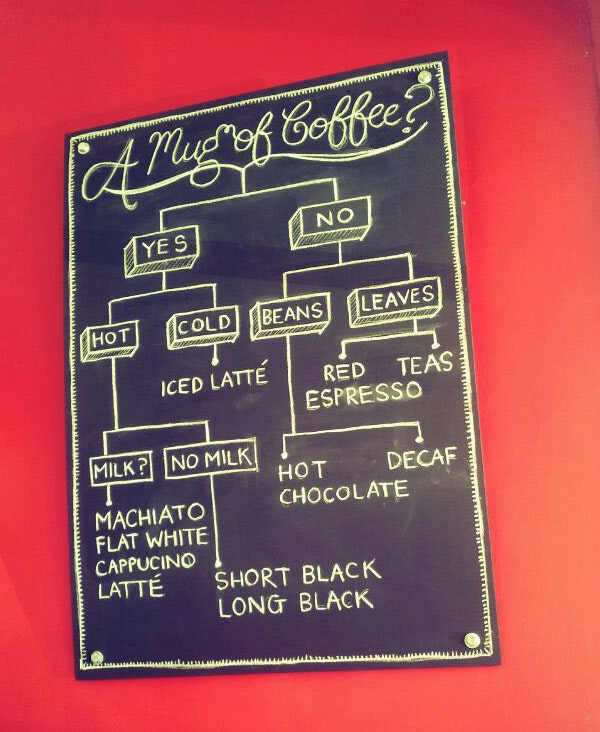 A Mug of Coffee?
YES
NO
HOT
COLD
BEANS
LEAVES
ICED LATTÉ
RED
ESPRESSO
TEAS
MILK?
NO MILK
HOT
CHOCOLATE
DECAF
MACHIATO
FLAT WHITE
CAPPUCINO
LATTÉ
SHORT BLACK
LONG BLACK